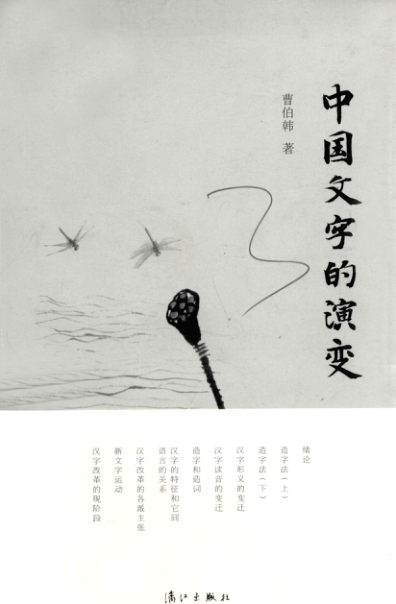 中国文字的演变
曹伯韩 著
绪论
造字法（上）
造字法（下）
汉字形义的变迁
汉字读音的变迁
造字和造词
汉字的特征和它同
语言的关系
汉字改革的各派主张
新文字运动
汉字改革的现阶段
漓江出版社